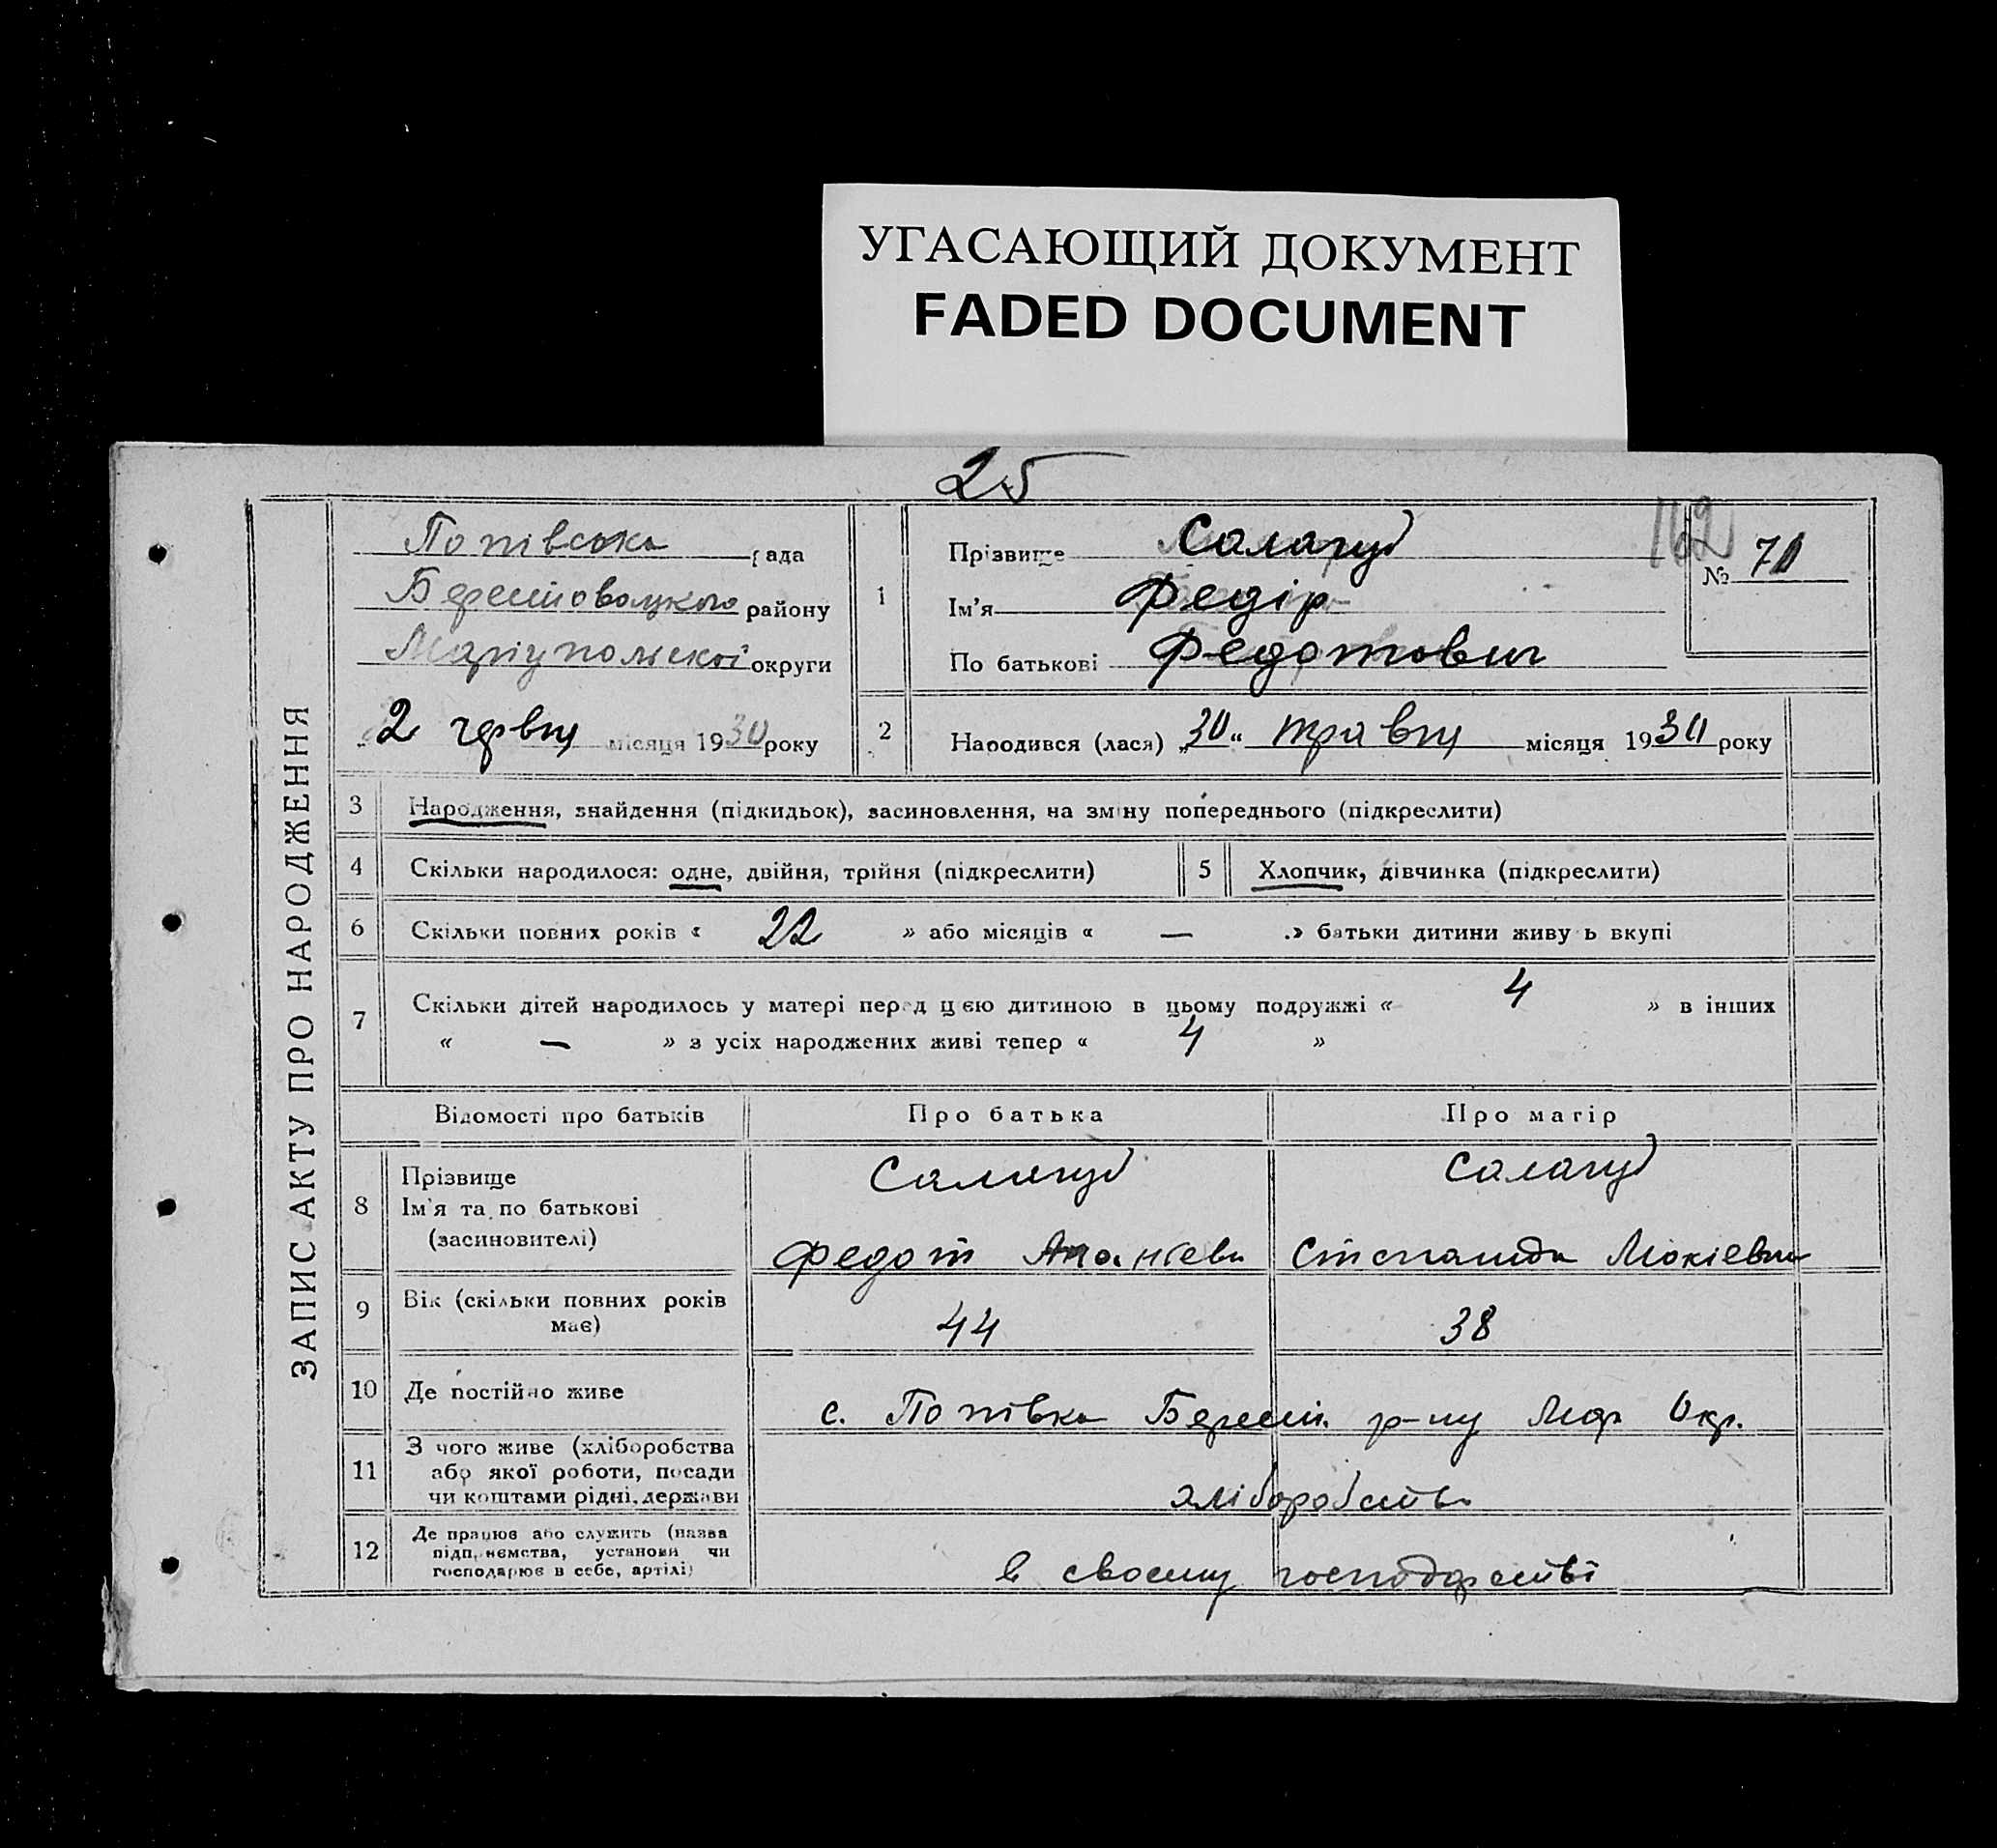 УГАСАЮЩИЙ ДОКУМЕНТ
FADED DOCUMENT
25
ЗАПИС АКТУ ПРО НАРОДЖЕННЯ
Попівська рада
району
Маріупольскої округи
2 червня місяця 1930 року
1
Прізвище Салагуб
Ім'я Федір
По батькові Федотович
162
№ 70
2 Народився (лася) „30“ травня місяця 1930 року
3 Народження, знайдення (підкидьок), засиновлення, на зміну попереднього (підкреслити)
4 Скільки народилося: одне, двійня, трійня (підкреслити) 5 Хлопчик, дівчинка (підкреслити)
6 Скільки повних років « 22 » або місяців « — » батьки дитини живуть вкупі
7 Скільки дітей народилось у матері перед цією дитиною в цьому подружжі « 4 » в інших
« — » з усіх народжених живі тепер « 4 »
Відомості про батьків Про батька Про матір
8 Прізвище
Ім'я та по батькові
(засиновителі)
Салагуб Салагуб
Федот Мокіевна
9 Вік (скільки повних років
має)
44 38
10 Де постійно живе с. Попівка Берест. р-ну Мар Окр.
11 З чого живе (хліборобства
або якої роботи, посади
чи коштами рідні, держави
хліборобство
12 Де працює або служить (назва
підприємства, установи чи
господарює в себе, артілі)
в своему господарстві